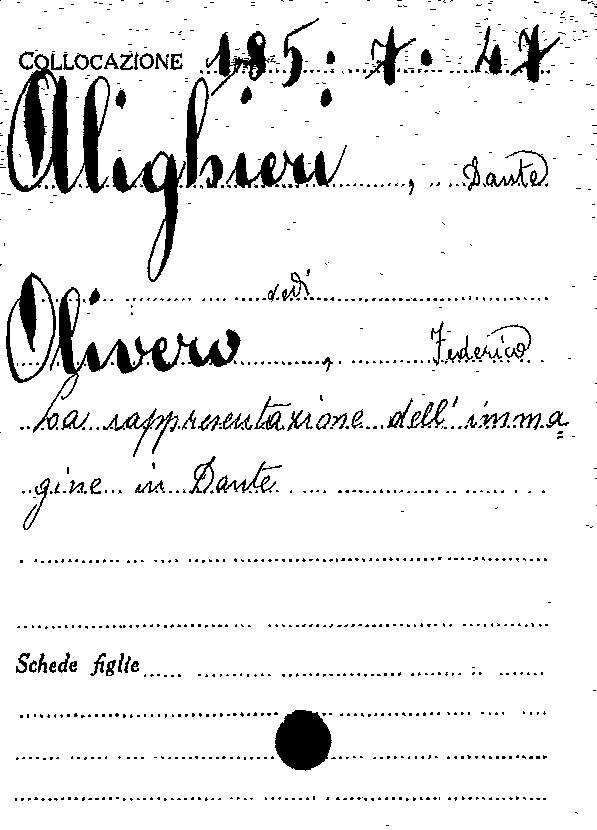 COLLOCAZIONE 185.7.47
Alighieri, Dante
vedi
Olivero, Federico
La rappresentazione dell'imma=
gine in Dante
Schede figlie